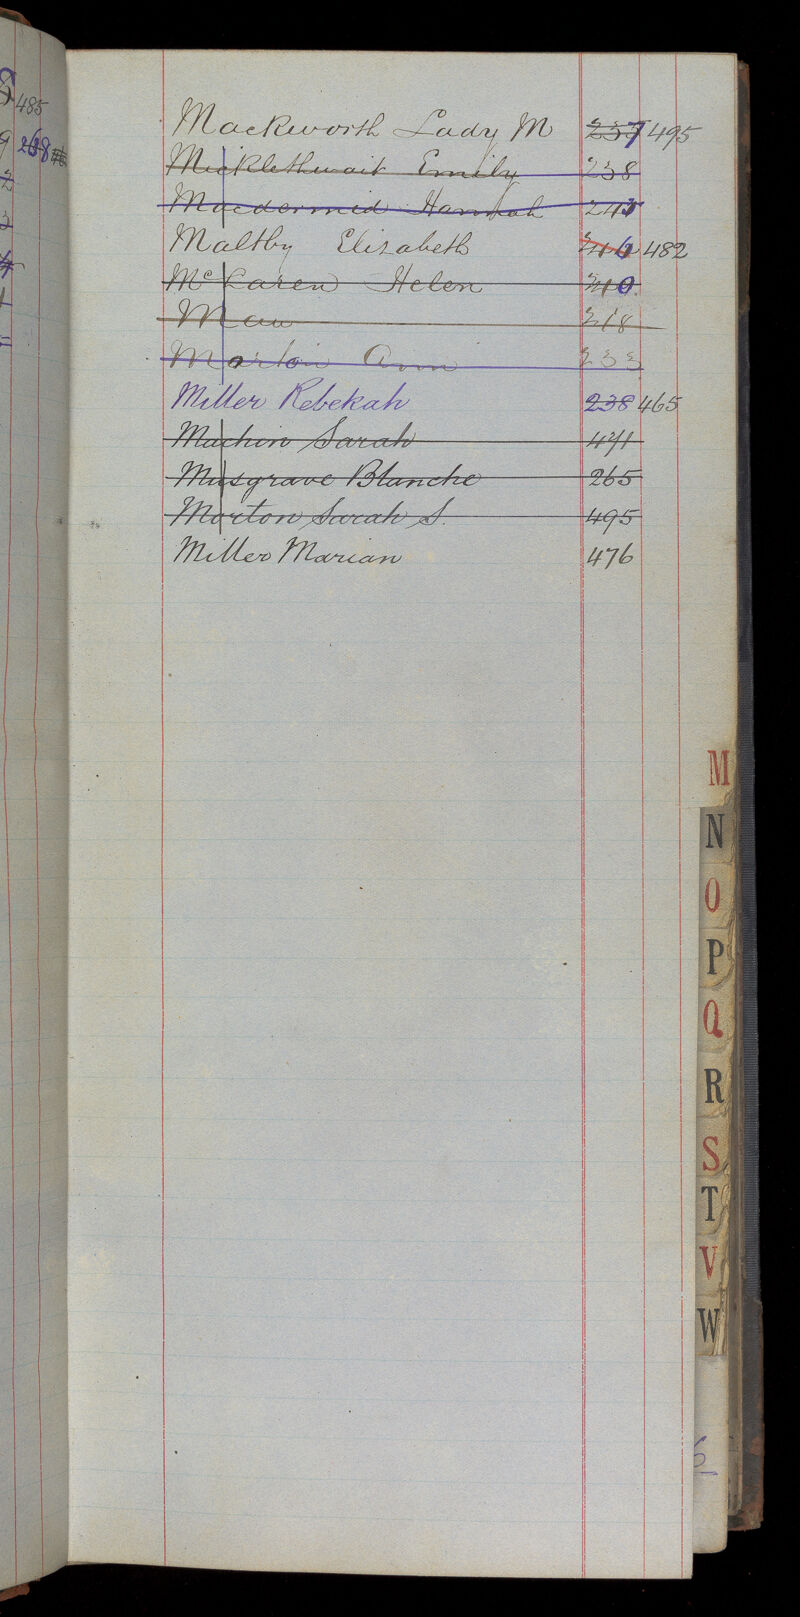 485
268
Mackworth Lady M 237 495
Micklethwait Emily 238
Macdermid Hannah 243
Maltby Elizabeth 482
McLaren Helen 210
Maw 218
Martin Ann 233
Miller Rebekah 238 465
Machin Sarah 471
Musgrave Blanche 265
Morton Sarah S. 495
Miller Marian 476
M
N
O
P
Q
R
S
T
V
W